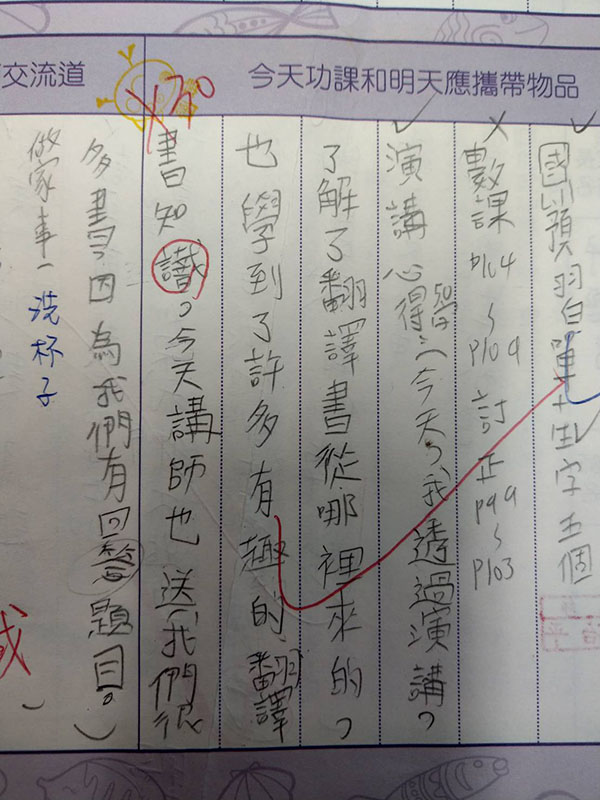 交流道
今天功課和明天應攜帶物品
國預習單+生字五個
數課P104~P109訂正P99~P103
演講心得:(今天,我透過演講,
了解了翻譯書從哪裡來的,
也學到了許多有趣的翻譯
書知識。今天講師也送我們很
多書,因為我們有回答題目。)
做家事:洗杯子